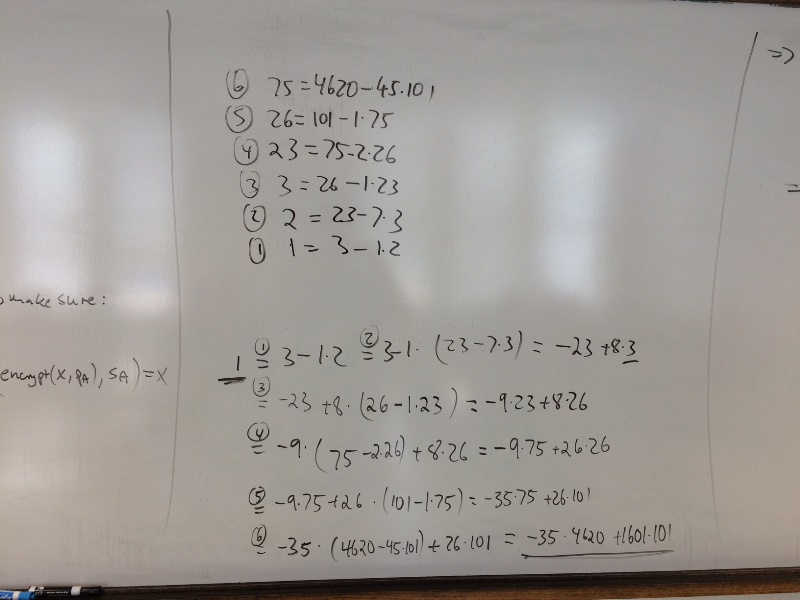 ⑥ 75=4620-45·101
⑤ 26=101-1·75
④ 23=75-2·26
③ 3=26-1·23
② 2=23-7·3
① 1=3-1·2
make sure:
encrypt(x,PA),SA)=x
=>
=
1 ①= 3-1·2 ②= 3-1·(23-7·3)=-23+8·3
③= -23+8·(26-1·23)=-9·23+8·26
④= -9·(75-2·26)+8·26=-9·75+26·26
⑤= -9·75+26·(101-1·75)=-35·75+26·101
⑥= -35·(4620-45·101)+26·101=-35·4620+1601·101